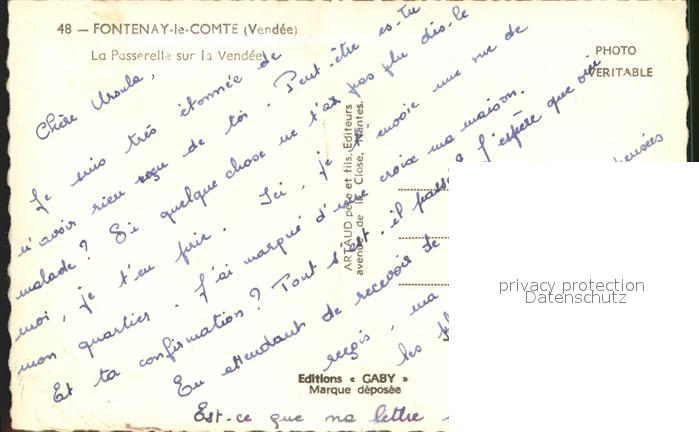 48 — FONTENAY-le-COMTE (Vendée)
La Passerelle sur la Vendée
PHOTO
VERITABLE
Chère Ursula,
Je suis très étonnée de
n'avoir rien reçu de toi. Peut-être es-tu
malade ? Si quelque chose ne t'as pas plu dis-le
moi, je t'en prie. Ici, je t'envoie une vue de
mon quartier. J'ai marqué d'une croix ma maison.
Et ta confirmation ? Tout s'est-il passé ? J'espère que oui
En attendant de recevoir de
pensées
reçois, ma
les
Est-ce que ma lettre
ARTAUD père et fils, Editeurs
avenue de la Close, Nantes.
Editions « GABY »
Marque déposée
privacy protection
Datenschutz